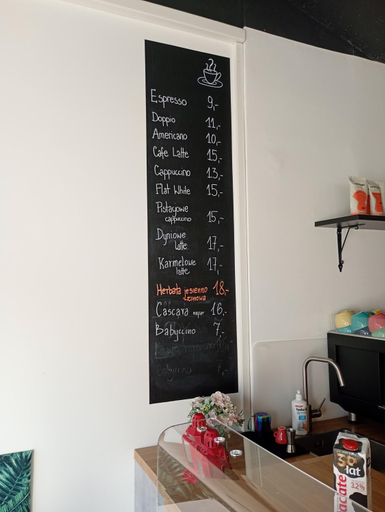 Espresso 9,-
Doppio 11,-
Americano 10,-
Cafe Latte 15,-
Cappuccino 13,-
Flat White 15,-
Pistacjowe
cappuccino 15,-
Dyniowe
latte 17,-
Karmelowe
latte 17,-
Herbata jesienno 18,-
zimowa
Cascara napar 16,-
Babyccino 7,-
Babyccino
30
lat
łaciate
3,2%